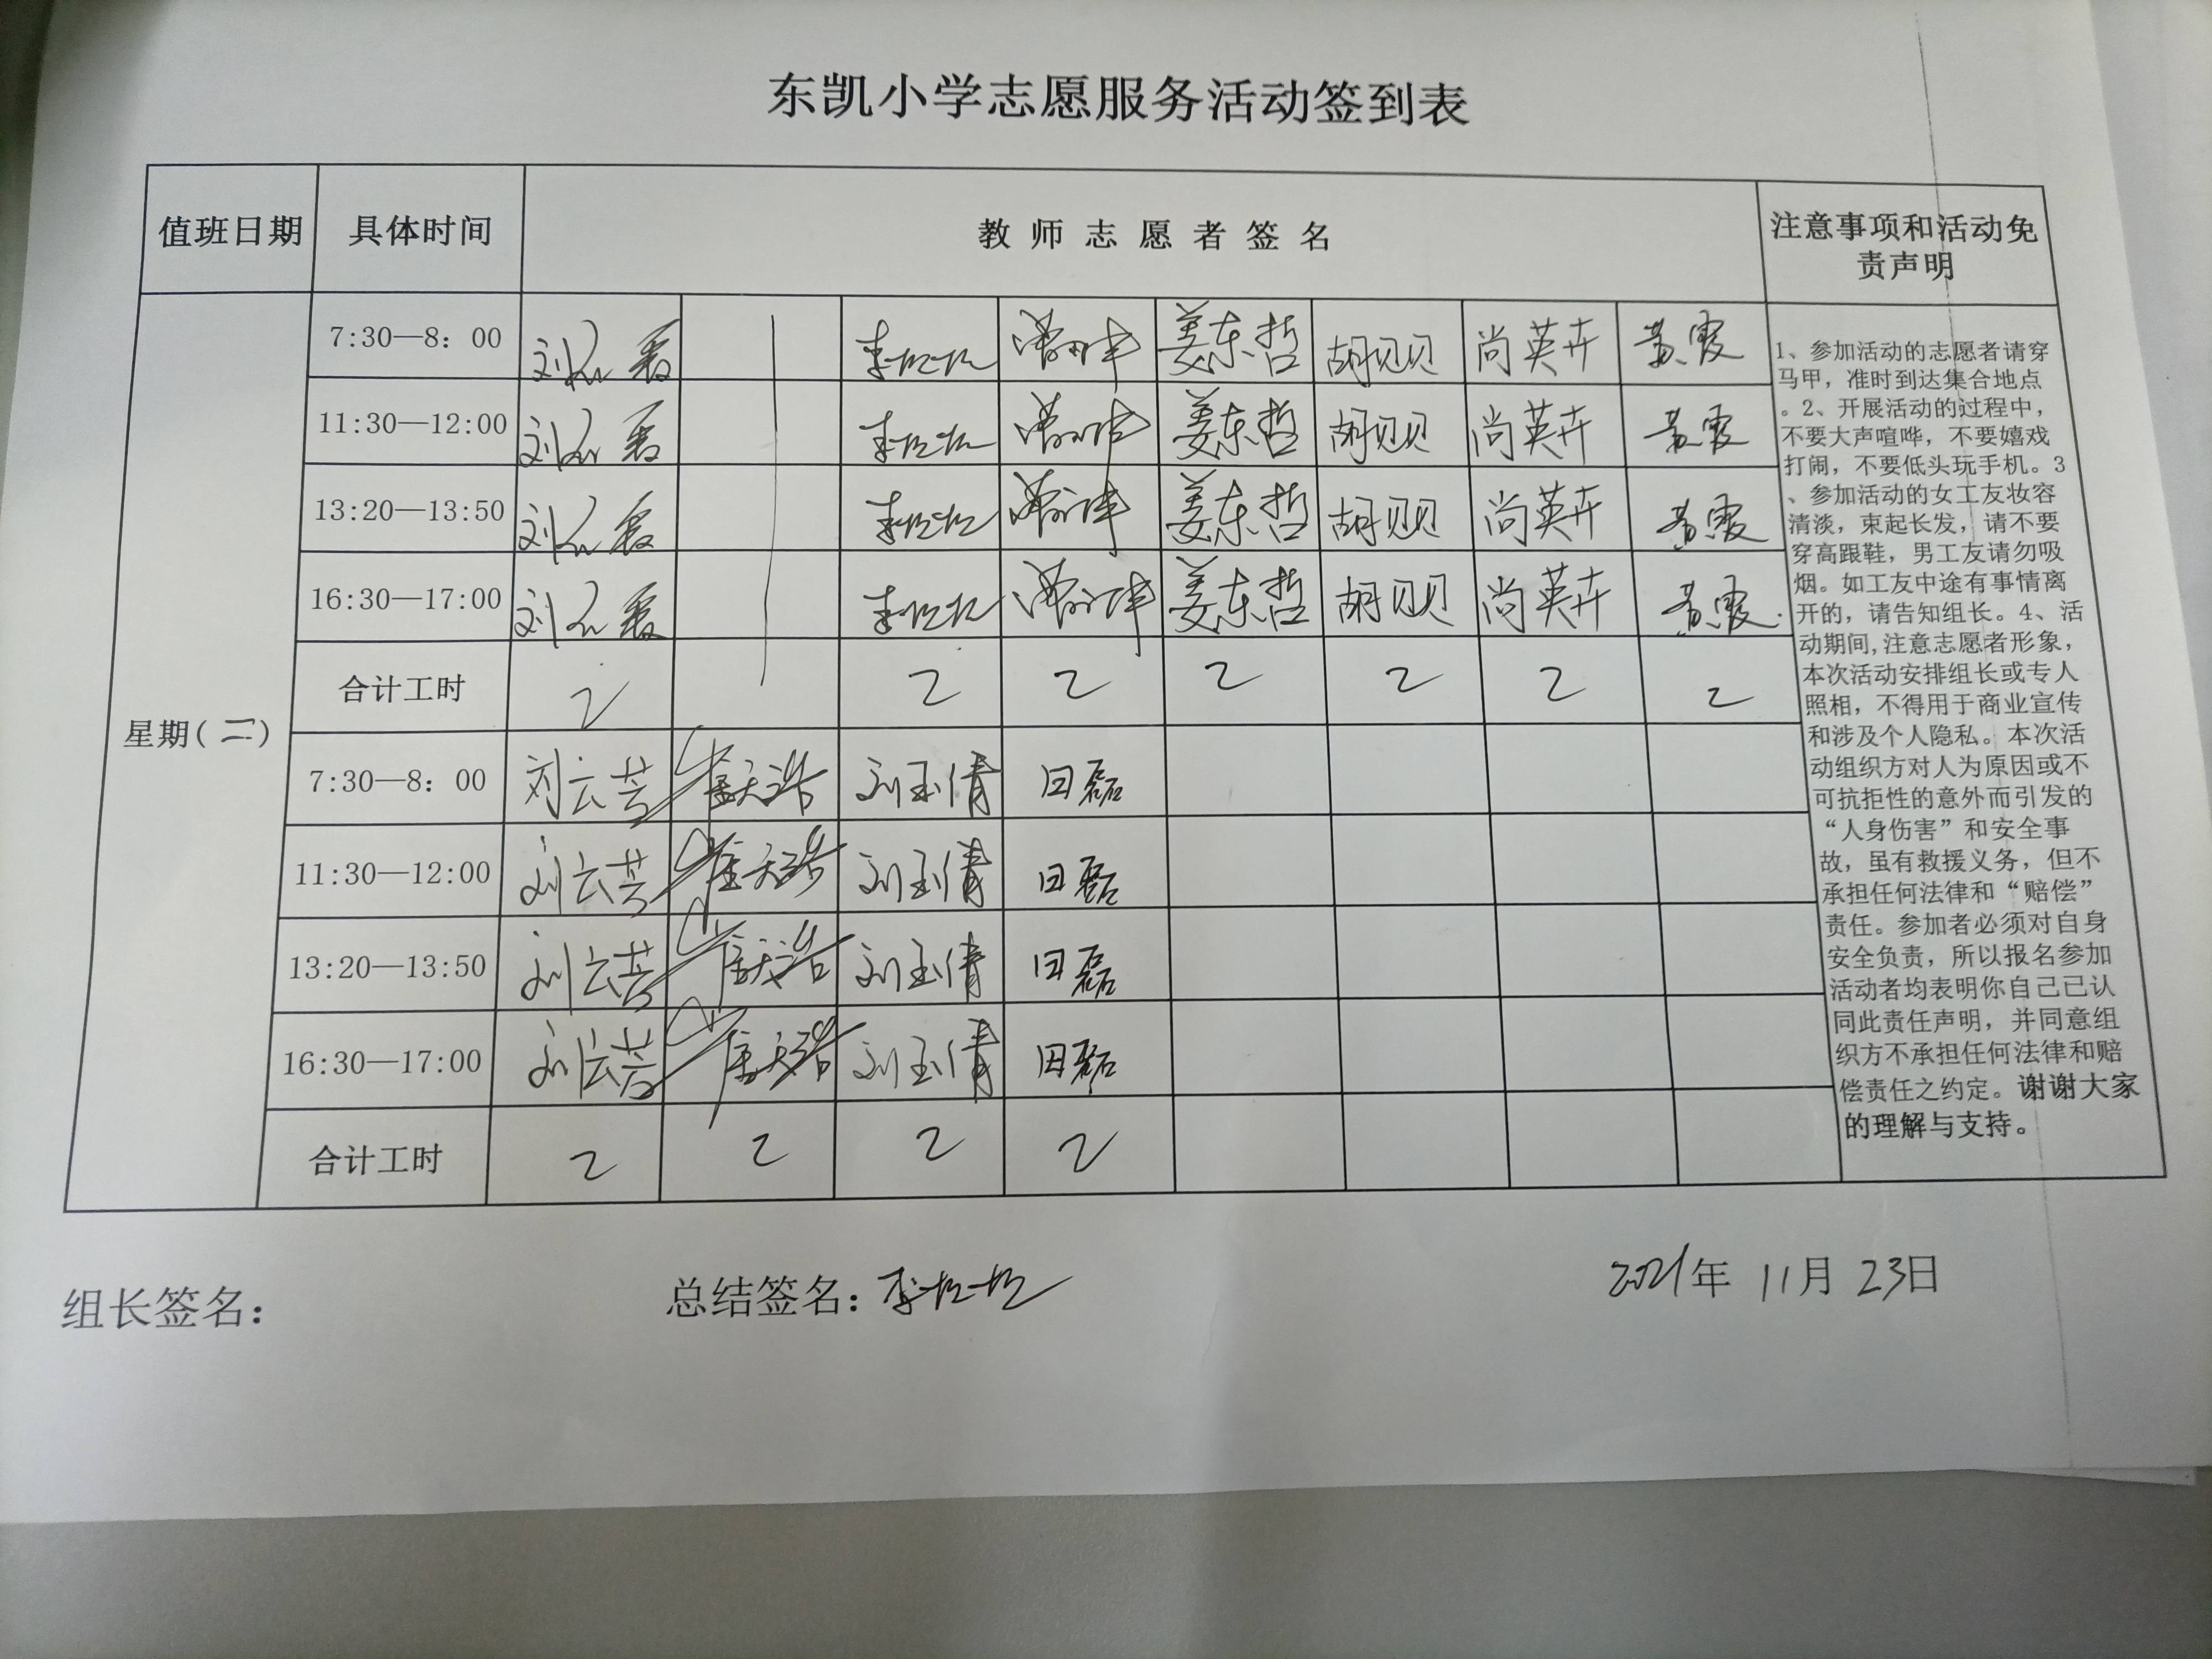 东凯小学志愿服务活动签到表
值班日期 具体时间 教师志愿者签名 注意事项和活动免
责声明
7:30—8：00 姜东哲 胡贝贝 尚英卉
11:30—12:00 姜东哲 胡贝贝 尚英卉
13:20—13:50 姜东哲 胡贝贝 尚英卉
16:30—17:00 姜东哲 胡贝贝 尚英卉
合计工时 2 2 2 2 2 2 2
星期(二)
7:30—8：00 刘云芸 刘玉倩 田磊
11:30—12:00 刘云芸 刘玉倩 田磊
13:20—13:50 刘云芸 刘玉倩 田磊
16:30—17:00 刘云芸 刘玉倩 田磊
合计工时 2 2 2 2
1、参加活动的志愿者请穿
马甲，准时到达集合地点
。2、开展活动的过程中，
不要大声喧哗，不要嬉戏
打闹，不要低头玩手机。3
、参加活动的女工友妆容
清淡，束起长发，请不要
穿高跟鞋，男工友请勿吸
烟。如工友中途有事情离
开的，请告知组长。4、活
动期间,注意志愿者形象，
本次活动安排组长或专人
照相，不得用于商业宣传
和涉及个人隐私。本次活
动组织方对人为原因或不
可抗拒性的意外而引发的
“人身伤害”和安全事
故，虽有救援义务，但不
承担任何法律和“赔偿”
责任。参加者必须对自身
安全负责，所以报名参加
活动者均表明你自己已认
同此责任声明，并同意组
织方不承担任何法律和赔
偿责任之约定。谢谢大家
的理解与支持。
组长签名： 总结签名： 2021年 11月 23日